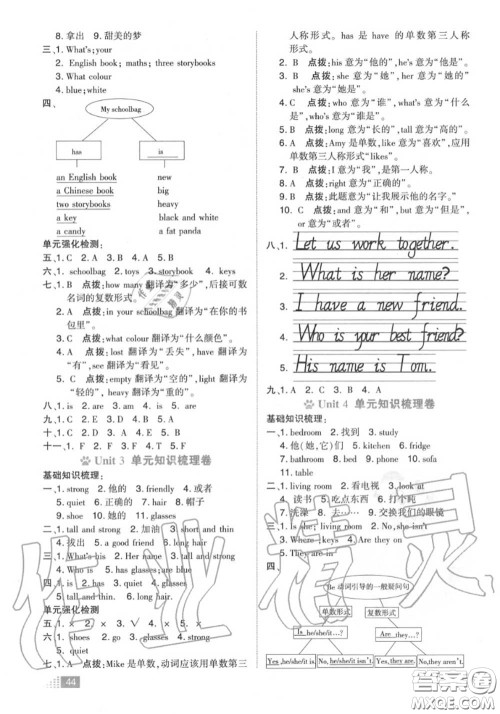 8. 拿出 9. 甜美的梦
三、1. What's; your
2. English book; maths; three storybooks
3. What colour
4. blue; white
四、
My schoolbag
has is
an English book new
a Chinese book big
two storybooks heavy
a key black and white
a candy a fat panda
单元强化检测:
五、1. C 2. A 3. C 4. A 5. B
六、1. schoolbag 2. toys 3. storybook 4. keys
七、1. B 点拨: how many 翻译为“多少”, 后接可数
名词的复数形式。
2. A 点拨: in your schoolbag 翻译为“在你的书
包里”。
3. C 点拨: what colour 翻译为“什么颜色”。
4. A 点拨: lost 翻译为“丢失”, have 翻译为
“有”, see 翻译为“看见”。
5. C 点拨: empty 翻译为“空的”, light 翻译为
“轻的”, heavy 翻译为“重的”。
八、1. is 2. are 3. am 4. is 5. are
九、1. C 2. D 3. A 4. B
十、1. B 2. C 3. D 4. A
十一、1. F 2. F 3. F 4. T 5. F
Unit 3 单元知识梳理卷
基础知识梳理:
一、1. strong 2. 他的 3. friendly 4. 或者
5. quiet 6. 正确的 7. hair 8. 帽子
9. shoe 10. glasses
二、1. tall and strong 2. 加油 3. short hair
4. 拔出 5. a good friend 6. long hair
三、1. What's his 2. Her name 3. tall and strong
4. Who is 5. has glasses; are blue
四、1. short 2. is quiet 3. glasses 4. glasses
5. tall and thin.
单元强化检测
五、1. × 2. × 3. √ 4. × 5. ×
六、1. shoes 2. go 3. glasses 4. quiet
七、1. A 点拨: Mike 是单数, 动词应该用单数第三
44
人称形式。has 是 have 的单数第三人称
形式。
2. B 点拨: his 意为“他的”, he's 意为“他是”。
3. B 点拨: she 意为“她”, her 意为“她的”
she's 意为“她是”。
4. C 点拨: who 意为“谁”, what's 意为“什么
是”, who's 意为“谁是”。
5. B 点拨: long 意为“长的”, tall 意为“高的”。
6. C 点拨: Amy 是单数, like 意为“喜欢”, 应用
单数第三人称形式“likes”。
7. B 点拨: I 意为“我”, 是第一人称。
8. A 点拨: right 意为“正确的”。
9. B 点拨: 此题意为“让我展示他的名字。”
10. C 点拨: and 意为“和”, but 意为“但是”,
or 意为“或者”。
八、1. Let us work together.
2. What is her name?
3. I have a new friend.
4. Who is your best friend?
5. His name is Tom.
九、1. A 2. C 3. B 4. A
Unit 4 单元知识梳理卷
基础知识梳理:
一、1. bedroom 2. 找到 3. study
4. 他(她、它)们 5. kitchen 6. fridge
7. phone 8. 床 9. bathroom 10. sofa
11. table
二、1. living room 2. 看电视 3. look at
4. 读书 5. 吃点东西 6. 打个盹
7. 洗澡 8. 去…… 9. 交换我们的图画
三、1. Is she; living room 2. No, she isn't
3. Where; keys 4. Are they on
5. They are in
四、
Be 动词引导的一般疑问句
单数形式 复数形式
Is he/she/it…? Are they…?
Yes, he/she/it is. No, he/she/it isn't. Yes, they are. No, they aren't.
作业精灵
答案圈